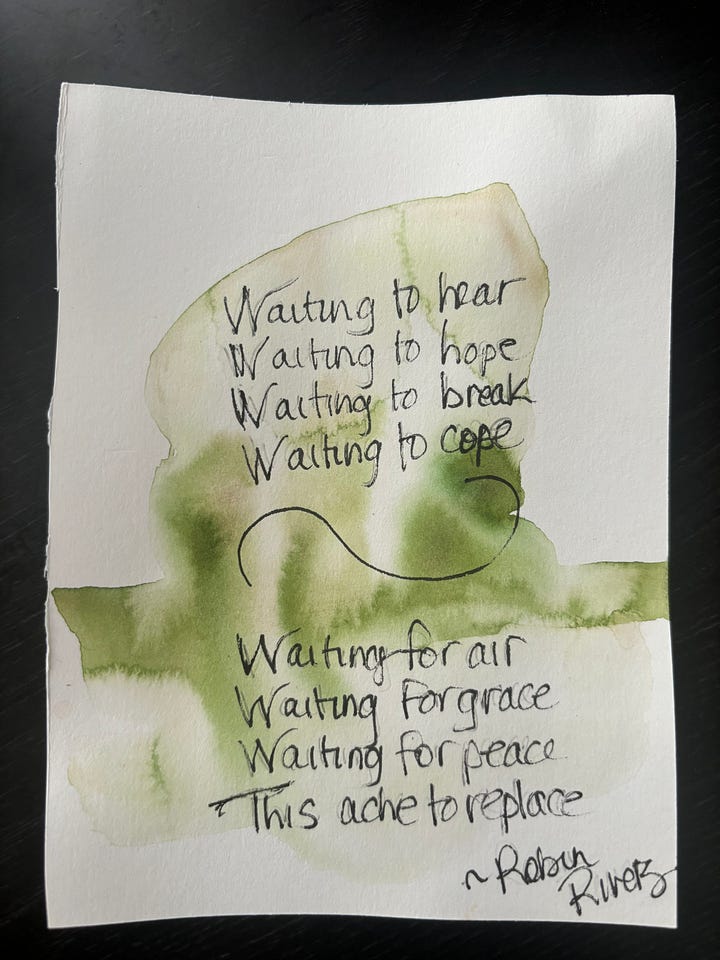 Waiting to hear
Waiting to hope
Waiting to break
Waiting to cope
Waiting for air
Waiting for grace
Waiting for peace
This ache to replace
~ Robin
Rivers